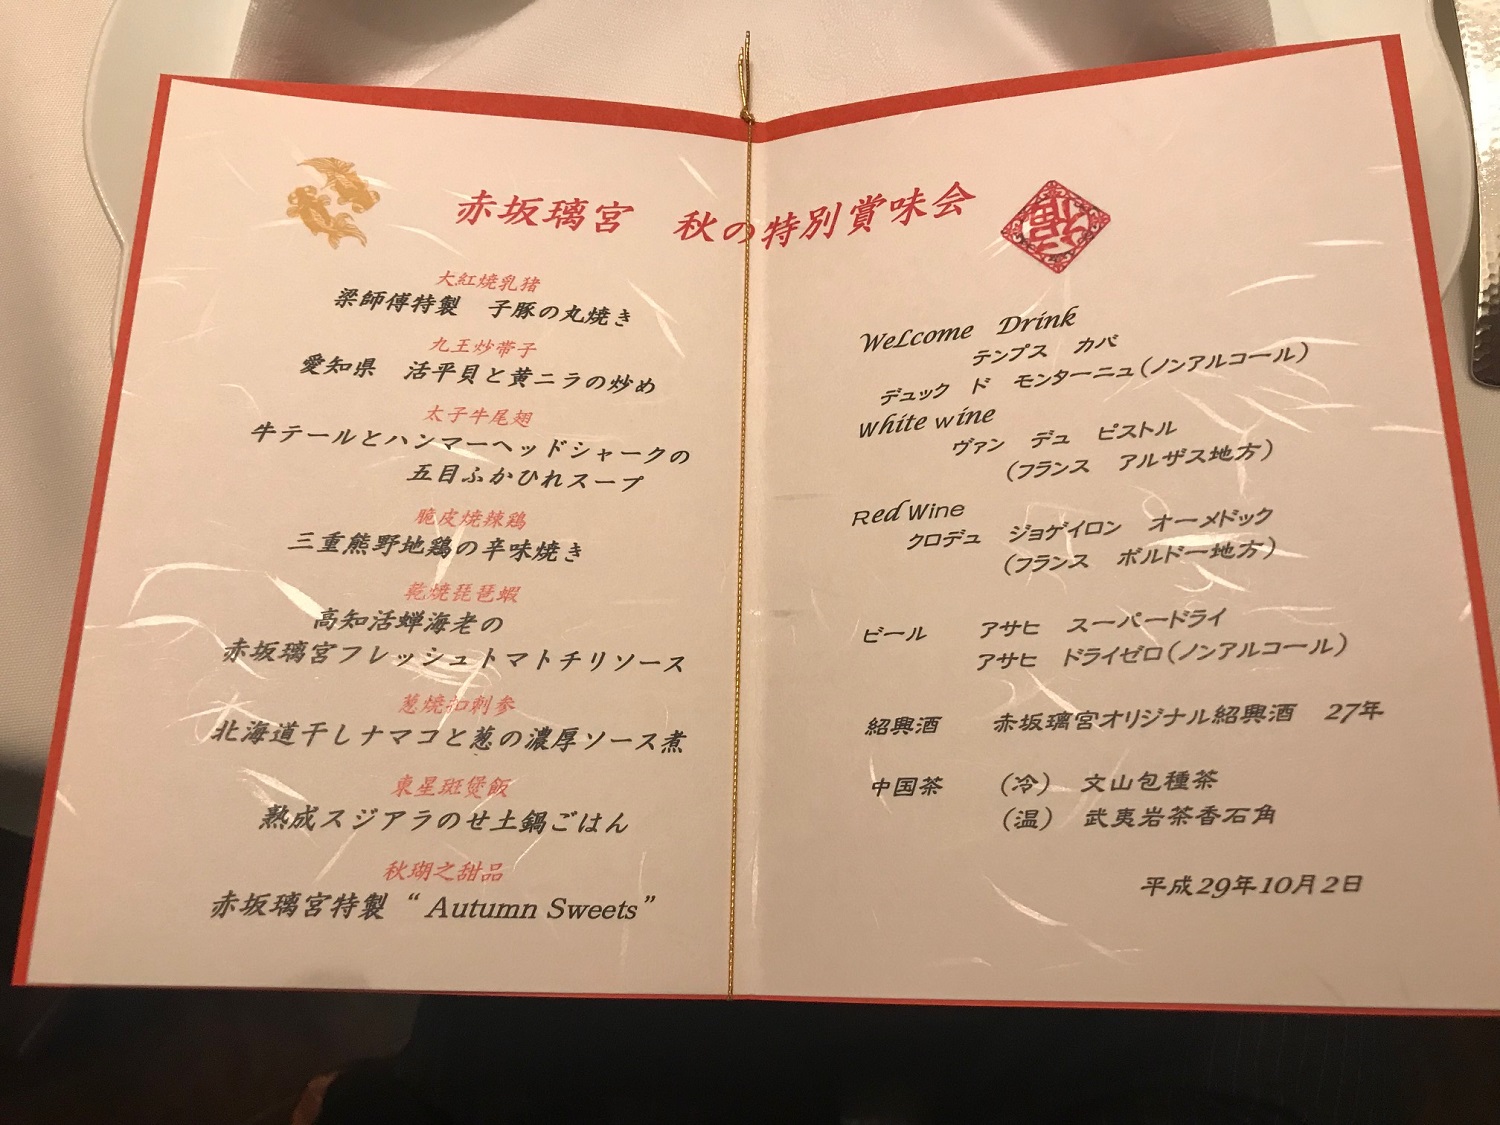 赤坂璃宮 秋の特別賞味会
大紅焼乳猪
梁師傅特製 子豚の丸焼き
九王炒帯子
愛知県 活平貝と黄ニラの炒め
太子牛尾翅
牛テールとハンマーヘッドシャークの
五目ふかひれスープ
脆皮焼辣鶏
三重熊野地鶏の辛味焼き
乾焼琵琶蝦
高知活蝉海老の
赤坂璃宮フレッシュトマトチリソース
葱焼扣刺参
北海道干しナマコと葱の濃厚ソース煮
東星斑煲飯
熟成スジアラのせ土鍋ごはん
秋瑚之甜品
赤坂璃宮特製 “ Autumn Sweets ”
福
Welcome Drink
テンプス カバ
デュック ド モンターニュ(ノンアルコール)
White wine
ヴァン デュ ピストル
(フランス アルザス地方)
Red Wine
クロデュ ジョゲイロン オーメドック
(フランス ボルドー地方)
ビール アサヒ スーパードライ
アサヒ ドライゼロ(ノンアルコール)
紹興酒 赤坂璃宮オリジナル紹興酒 27年
中国茶 (冷) 文山包種茶
(温) 武夷岩茶香石角
平成29年10月2日